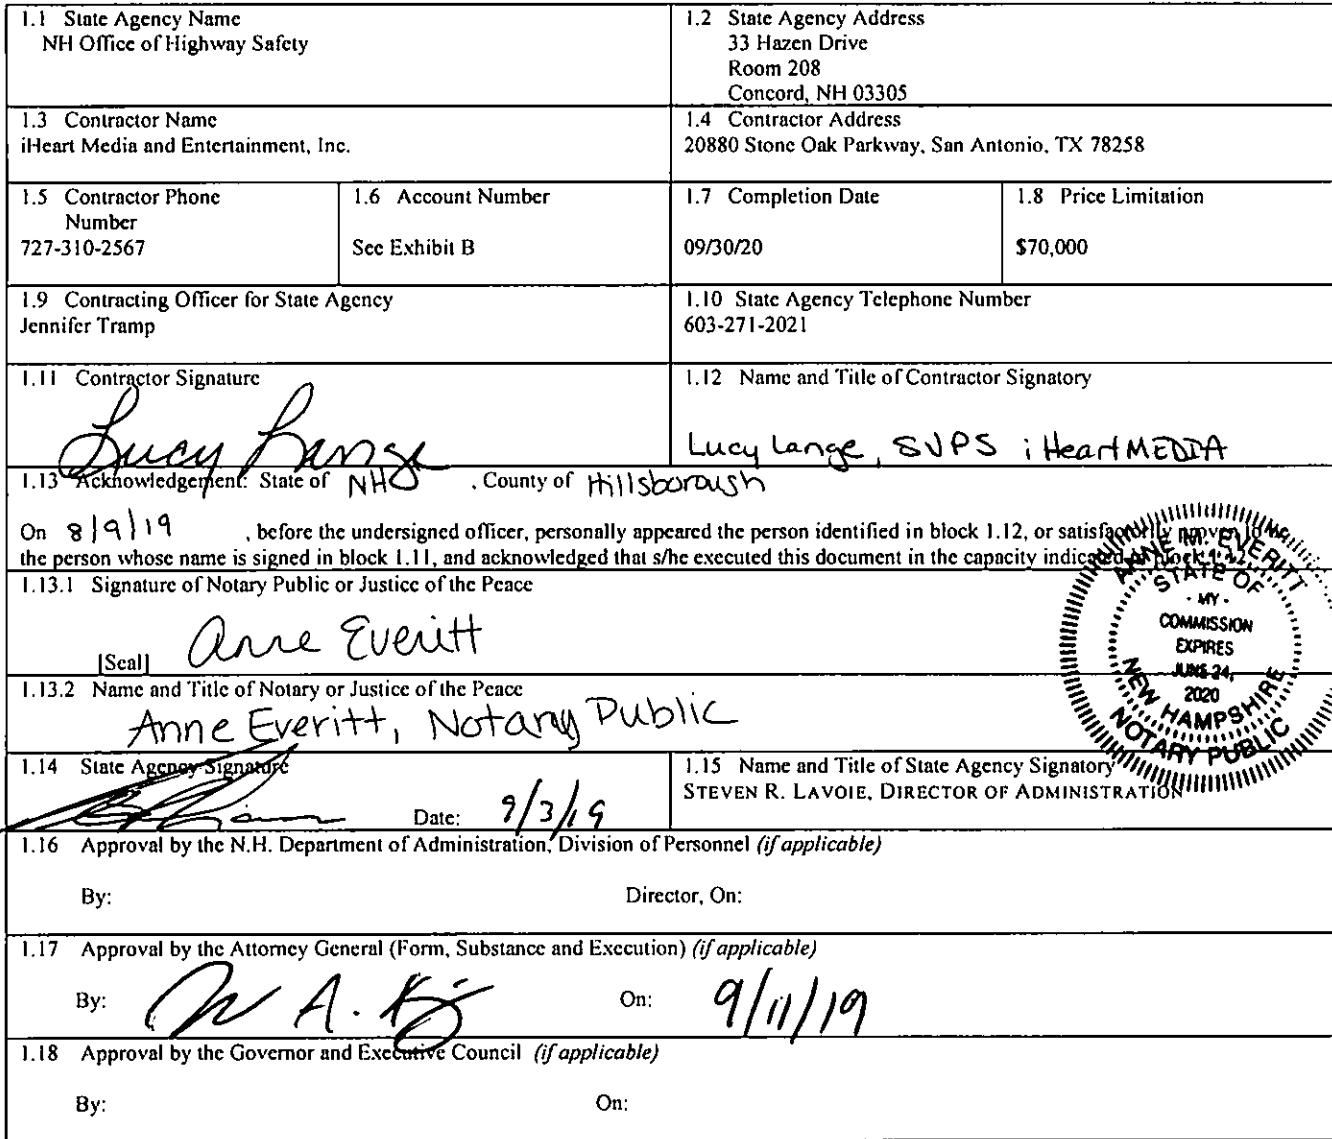 1.1 State Agency Name
NH Office of Highway Safety
1.2 State Agency Address
33 Hazen Drive
Room 208
Concord, NH 03305
1.3 Contractor Name
iHeart Media and Entertainment, Inc.
1.4 Contractor Address
20880 Stone Oak Parkway, San Antonio, TX 78258
1.5 Contractor Phone
Number
727-310-2567
1.6 Account Number
See Exhibit B
1.7 Completion Date
09/30/20
1.8 Price Limitation
$70,000
1.9 Contracting Officer for State Agency
Jennifer Tramp
1.10 State Agency Telephone Number
603-271-2021
1.11 Contractor Signature
Lucy Lange
1.12 Name and Title of Contractor Signatory
Lucy Lange, SVPS iHeartMEDIA
1.13 Acknowledgement: State of NH , County of Hillsborough
On 8/9/19 , before the undersigned officer, personally appeared the person identified in block 1.12, or satisfactorily proven to
the person whose name is signed in block 1.11, and acknowledged that s/he executed this document in the capacity indicated block 1.12
1.13.1 Signature of Notary Public or Justice of the Peace
Anne Everitt
[Seal]
ANNE M. EVERITT
STATE OF
- MY -
COMMISSION
EXPIRES
JUNE 24,
2020
NEW HAMPSHIRE
NOTARY PUBLIC
1.13.2 Name and Title of Notary or Justice of the Peace
Anne Everitt, Notary Public
1.14 State Agency Signature
Date: 9/3/19
1.15 Name and Title of State Agency Signatory
STEVEN R. LAVOIE, DIRECTOR OF ADMINISTRATION
1.16 Approval by the N.H. Department of Administration, Division of Personnel (if applicable)
By: Director, On:
1.17 Approval by the Attorney General (Form, Substance and Execution) (if applicable)
By: On: 9/11/19
1.18 Approval by the Governor and Executive Council (if applicable)
By: On: